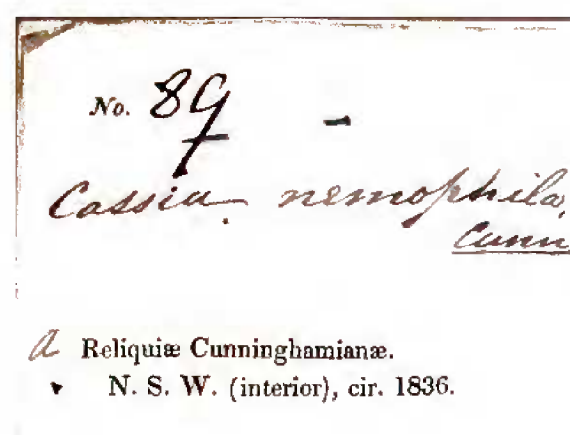 No. 89
Cassia nemophila,
Cunn
a Reliquiæ Cunninghamianæ.
N. S. W. (interior), cir. 1836.